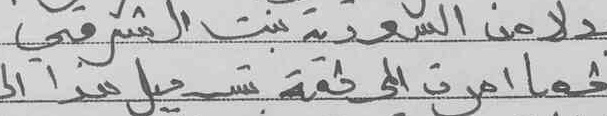 دلا من السعودية بنت الشرقي
كما امرت الموثقة تسجيل هذا ال